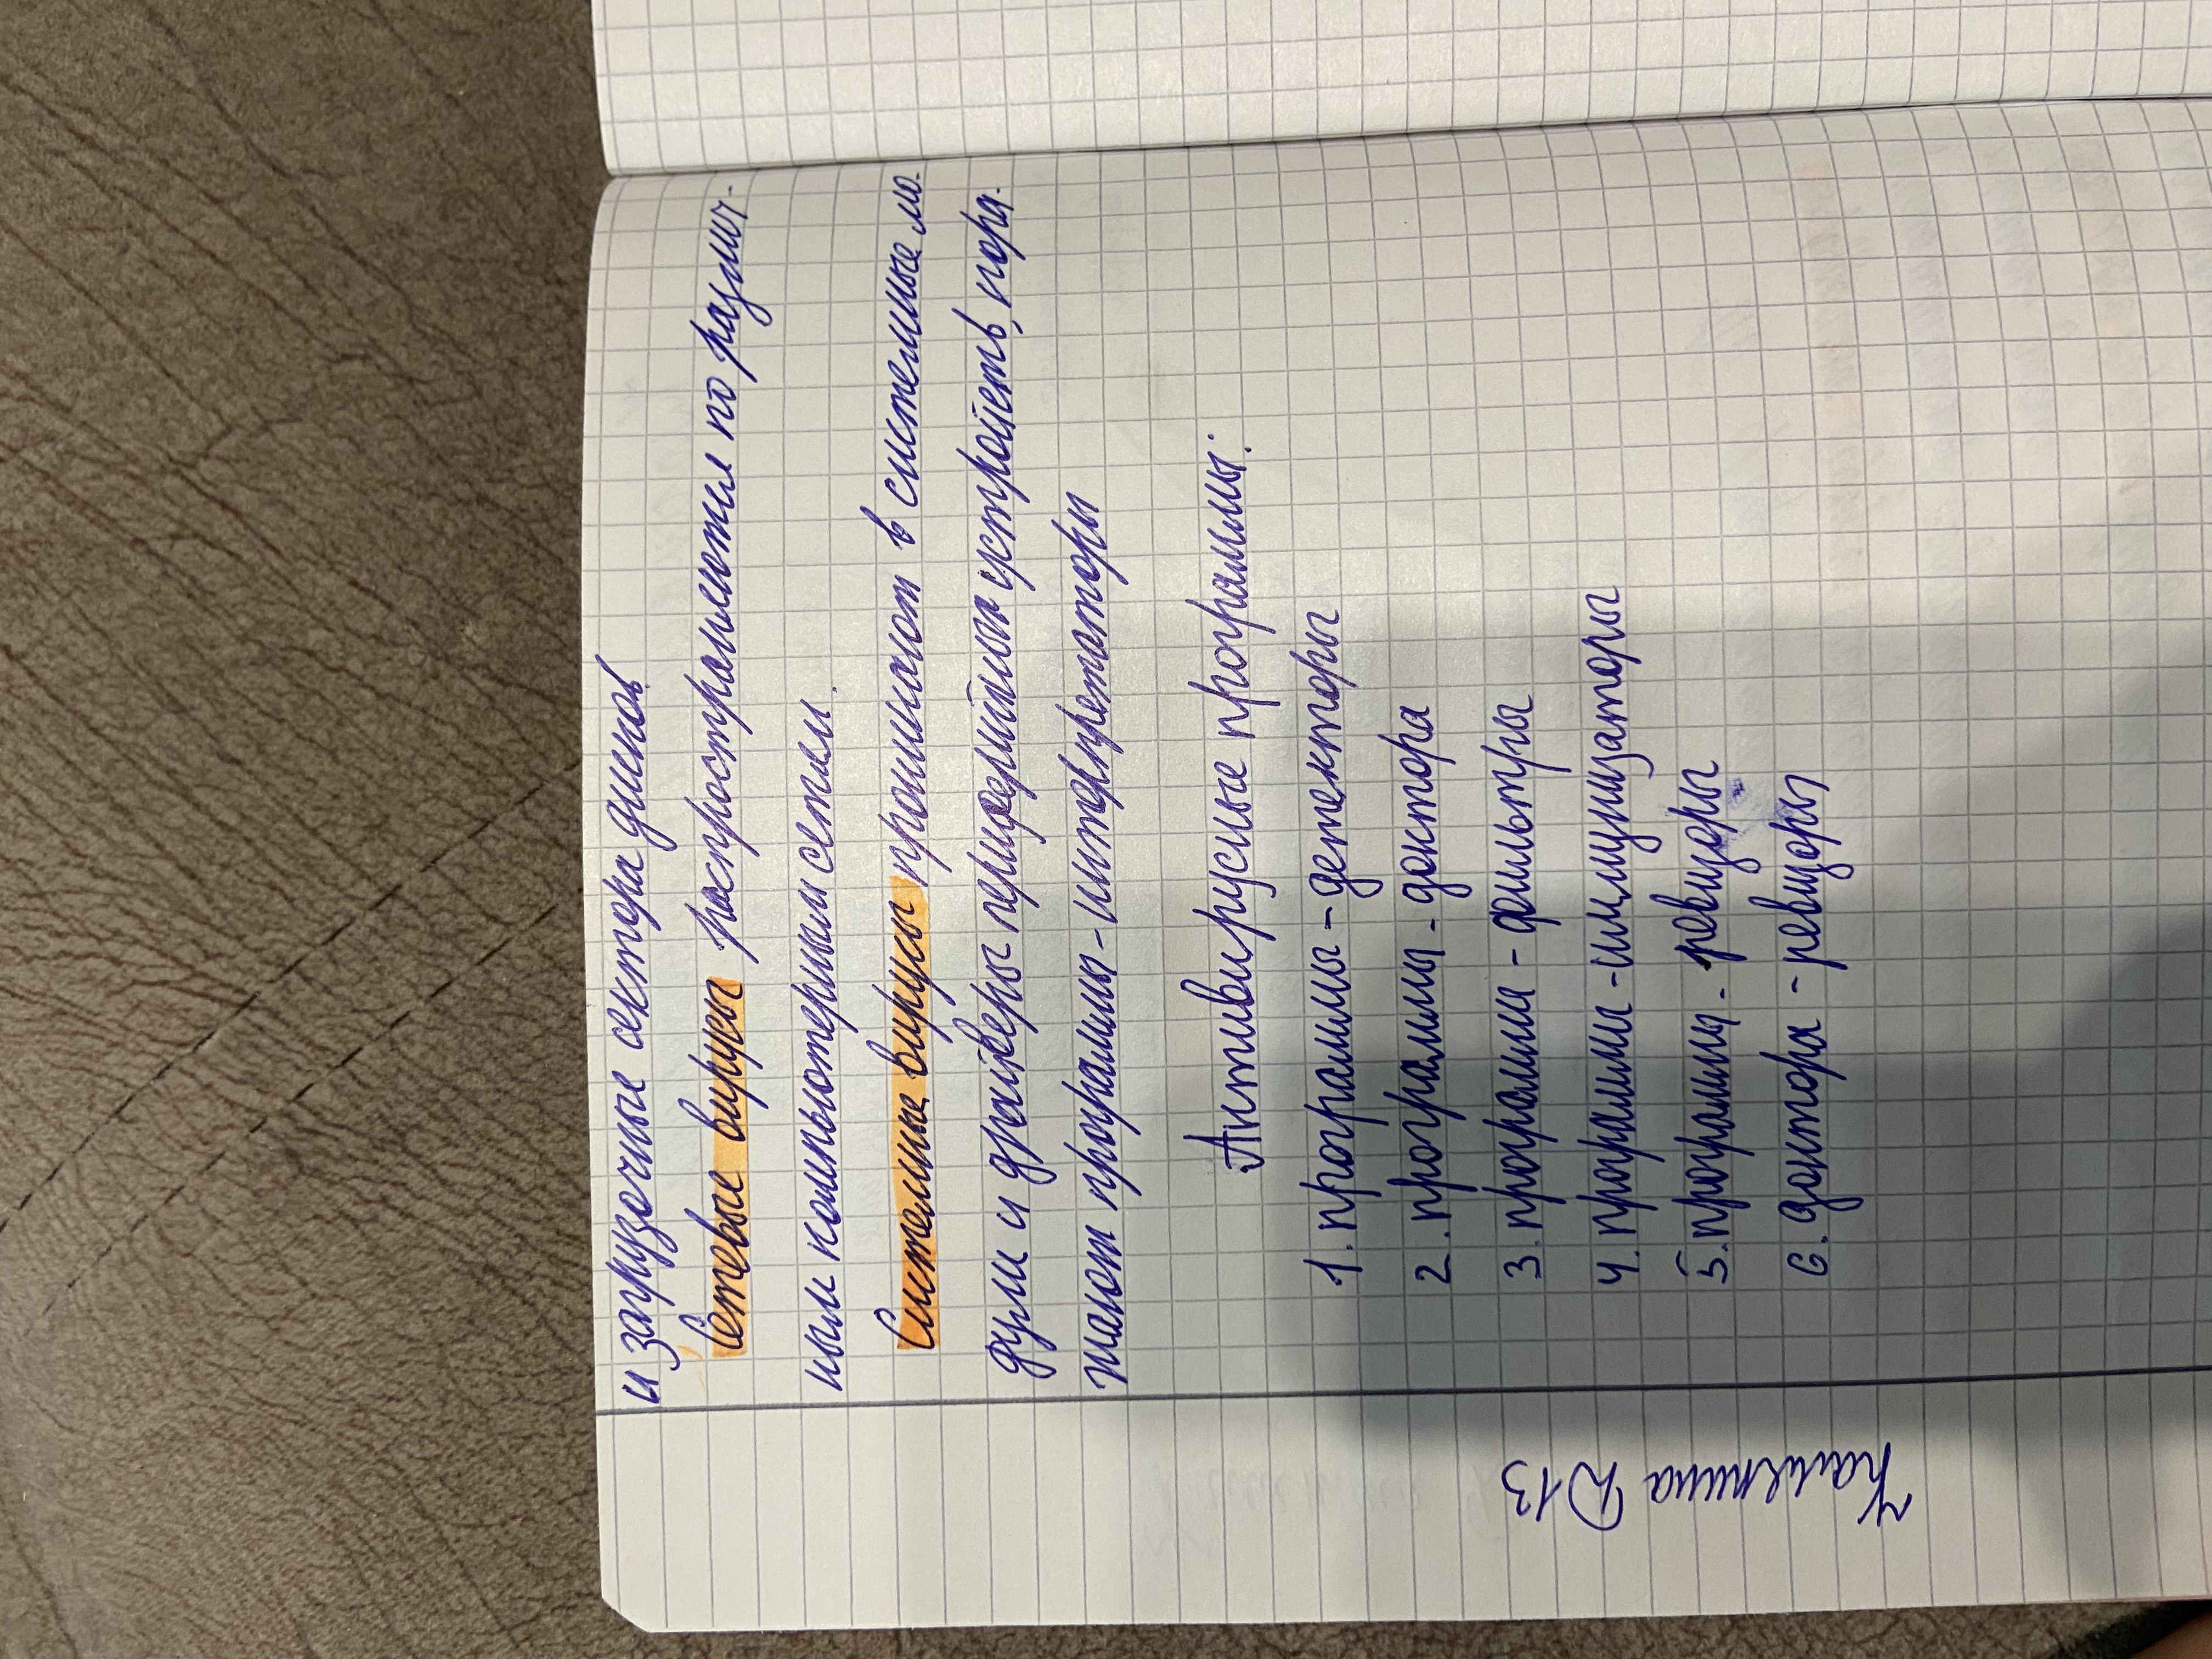 и загрузочные сектора дисков
Сетевые вирусы распространяются по различ-
ным компьютерным сетям.
Системные вирусы проникают в системные мо-
дули и драйверы периферийных устройств, пора-
жают программы-интерпретаторы
Антивирусные программы:
1. программы - детекторы
2. программы - доктора
3. программы - фильтры
4. программы - иммунизаторы
5. программы - ревизоры
6. доктора - ревизоры
Д13